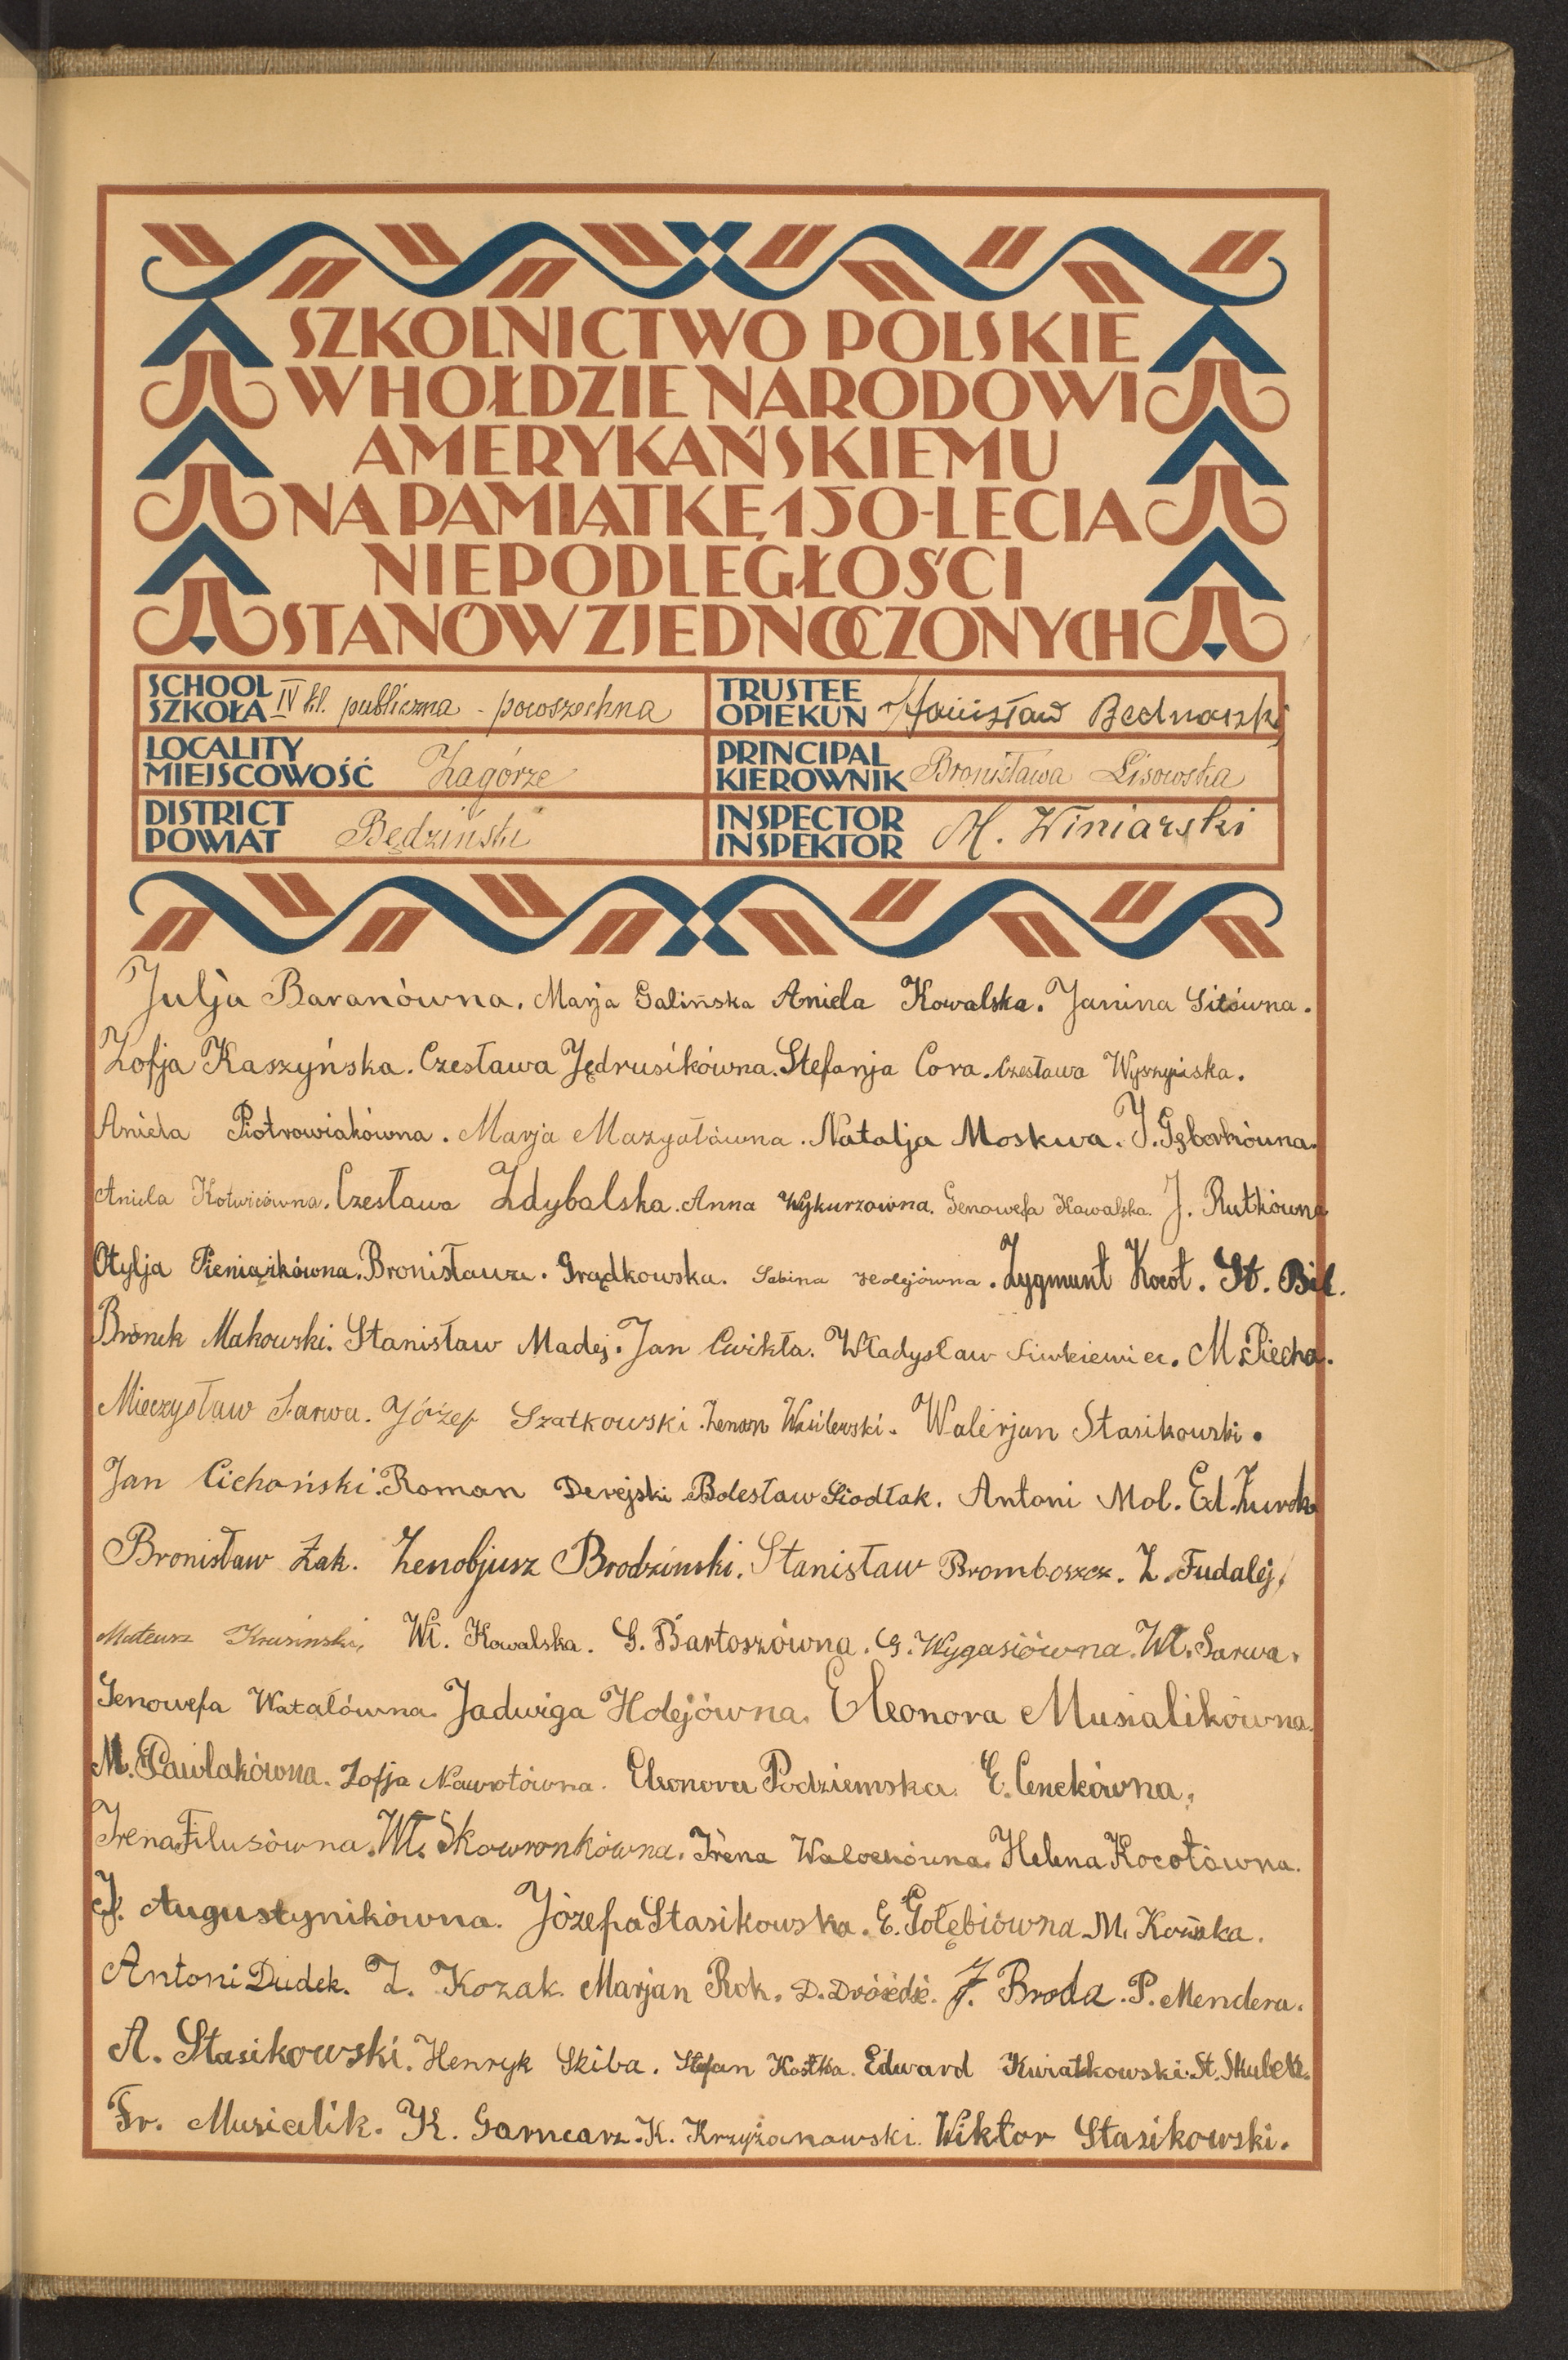 SZKOLNICTWO POLSKIE
W HOŁDZIE NARODOWI
AMERYKAŃSKIEMU
NA PAMIĄTKĘ 150-LECIA
NIEPODLEGŁOŚCI
STANÓW ZJEDNOCZONYCH
SCHOOL
SZKOŁA IV kl. publiczna - powszechna
TRUSTEE
OPIEKUN Stanisław Bednarski
LOCALITY
MIEJSCOWOŚĆ Zagórze
PRINCIPAL
KIEROWNIK Bronisława Lisowska
DISTRICT
POWIAT Będziński
INSPECTOR
INSPEKTOR M. Winiarski
Julja Baranówna. Marja Galińska Aniela Kowalska. Janina Sitówna.
Zofja Kaszyńska. Czesława Jędrusikówna. Stefanja Cora. Czesława Wyszyńska.
Aniela Piotrowiakówna. Marja Mazgałówna. Natalja Moskwa. J. Gęborkówna.
Aniela Kotwicówna. Czesława Zdybalska. Anna Wykurzówna. Genowefa Kowalska. J. Rutkówna
Otylja Pieniążkówna. Bronisława. Grądkowska. Sabina Holejówna. Zygmunt Kocot. St. Bil.
Bronek Makowski. Stanisław Madej. Jan Ćwikła. Władysław Siwkiewicz. M. Piecha.
Mieczysław Sarwa. Józef Szatkowski. Zenon Wasilewski. Walerjan Stasikowski.
Jan Cichoński. Roman Derejski Bolesław Siodłak. Antoni Mol. Ed. Żurek
Bronisław Żak. Zenobjusz Brodziński. Stanisław Bromboszcz. Z. Fudalej.
Mateusz Krusiński, Wł. Kowalska. G. Bartoszówna. G. Wygasiówna. Wł. Sarwa.
Genowefa Watałówna. Jadwiga Holejówna. Eleonora Musialikówna.
M. Pawlakówna. Zofja Nawrotówna. Eleonora Podziemska. E. Cenckówna.
Irena Filusówna. Wł. Skowronkówna. Irena Walockówna. Helena Kocotówna.
J. Augustynikówna. Józefa Stasikowska. E. Gołębiówna. M. Końska.
Antoni Dudek. Z. Kozak. Marjan Rok. D. Dróżdż. J. Broda. P. Mendera.
A. Stasikowski. Henryk Skiba. Stefan Kostka. Edward Kwiatkowski. St. Skubek.
Fr. Musialik. K. Garncarz. K. Krzyżanowski. Wiktor Stasikowski.